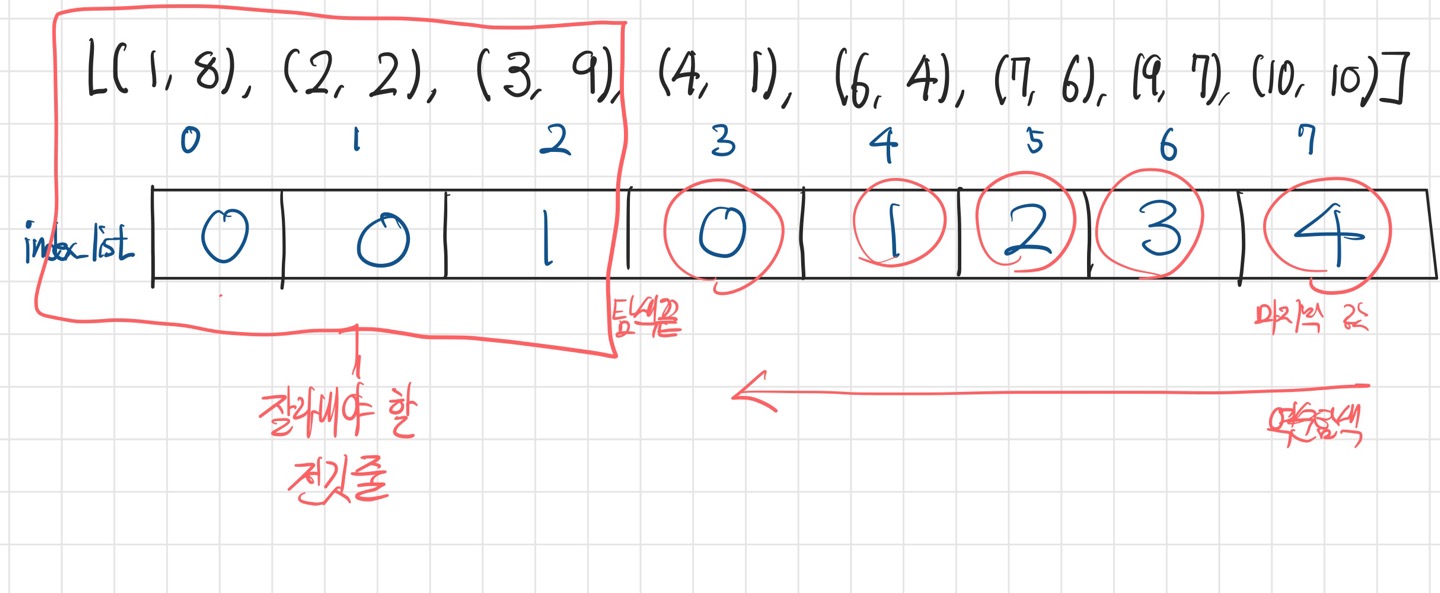 [(1, 8), (2, 2), (3, 9), (4, 1), (6, 4), (7, 6), (9, 7), (10, 10)]
0 1 2 3 4 5 6 7
index list 0 0 1 0 1 2 3 4
탐색끝 마지막 값
잘라내야 할 역순탐색
전깃줄